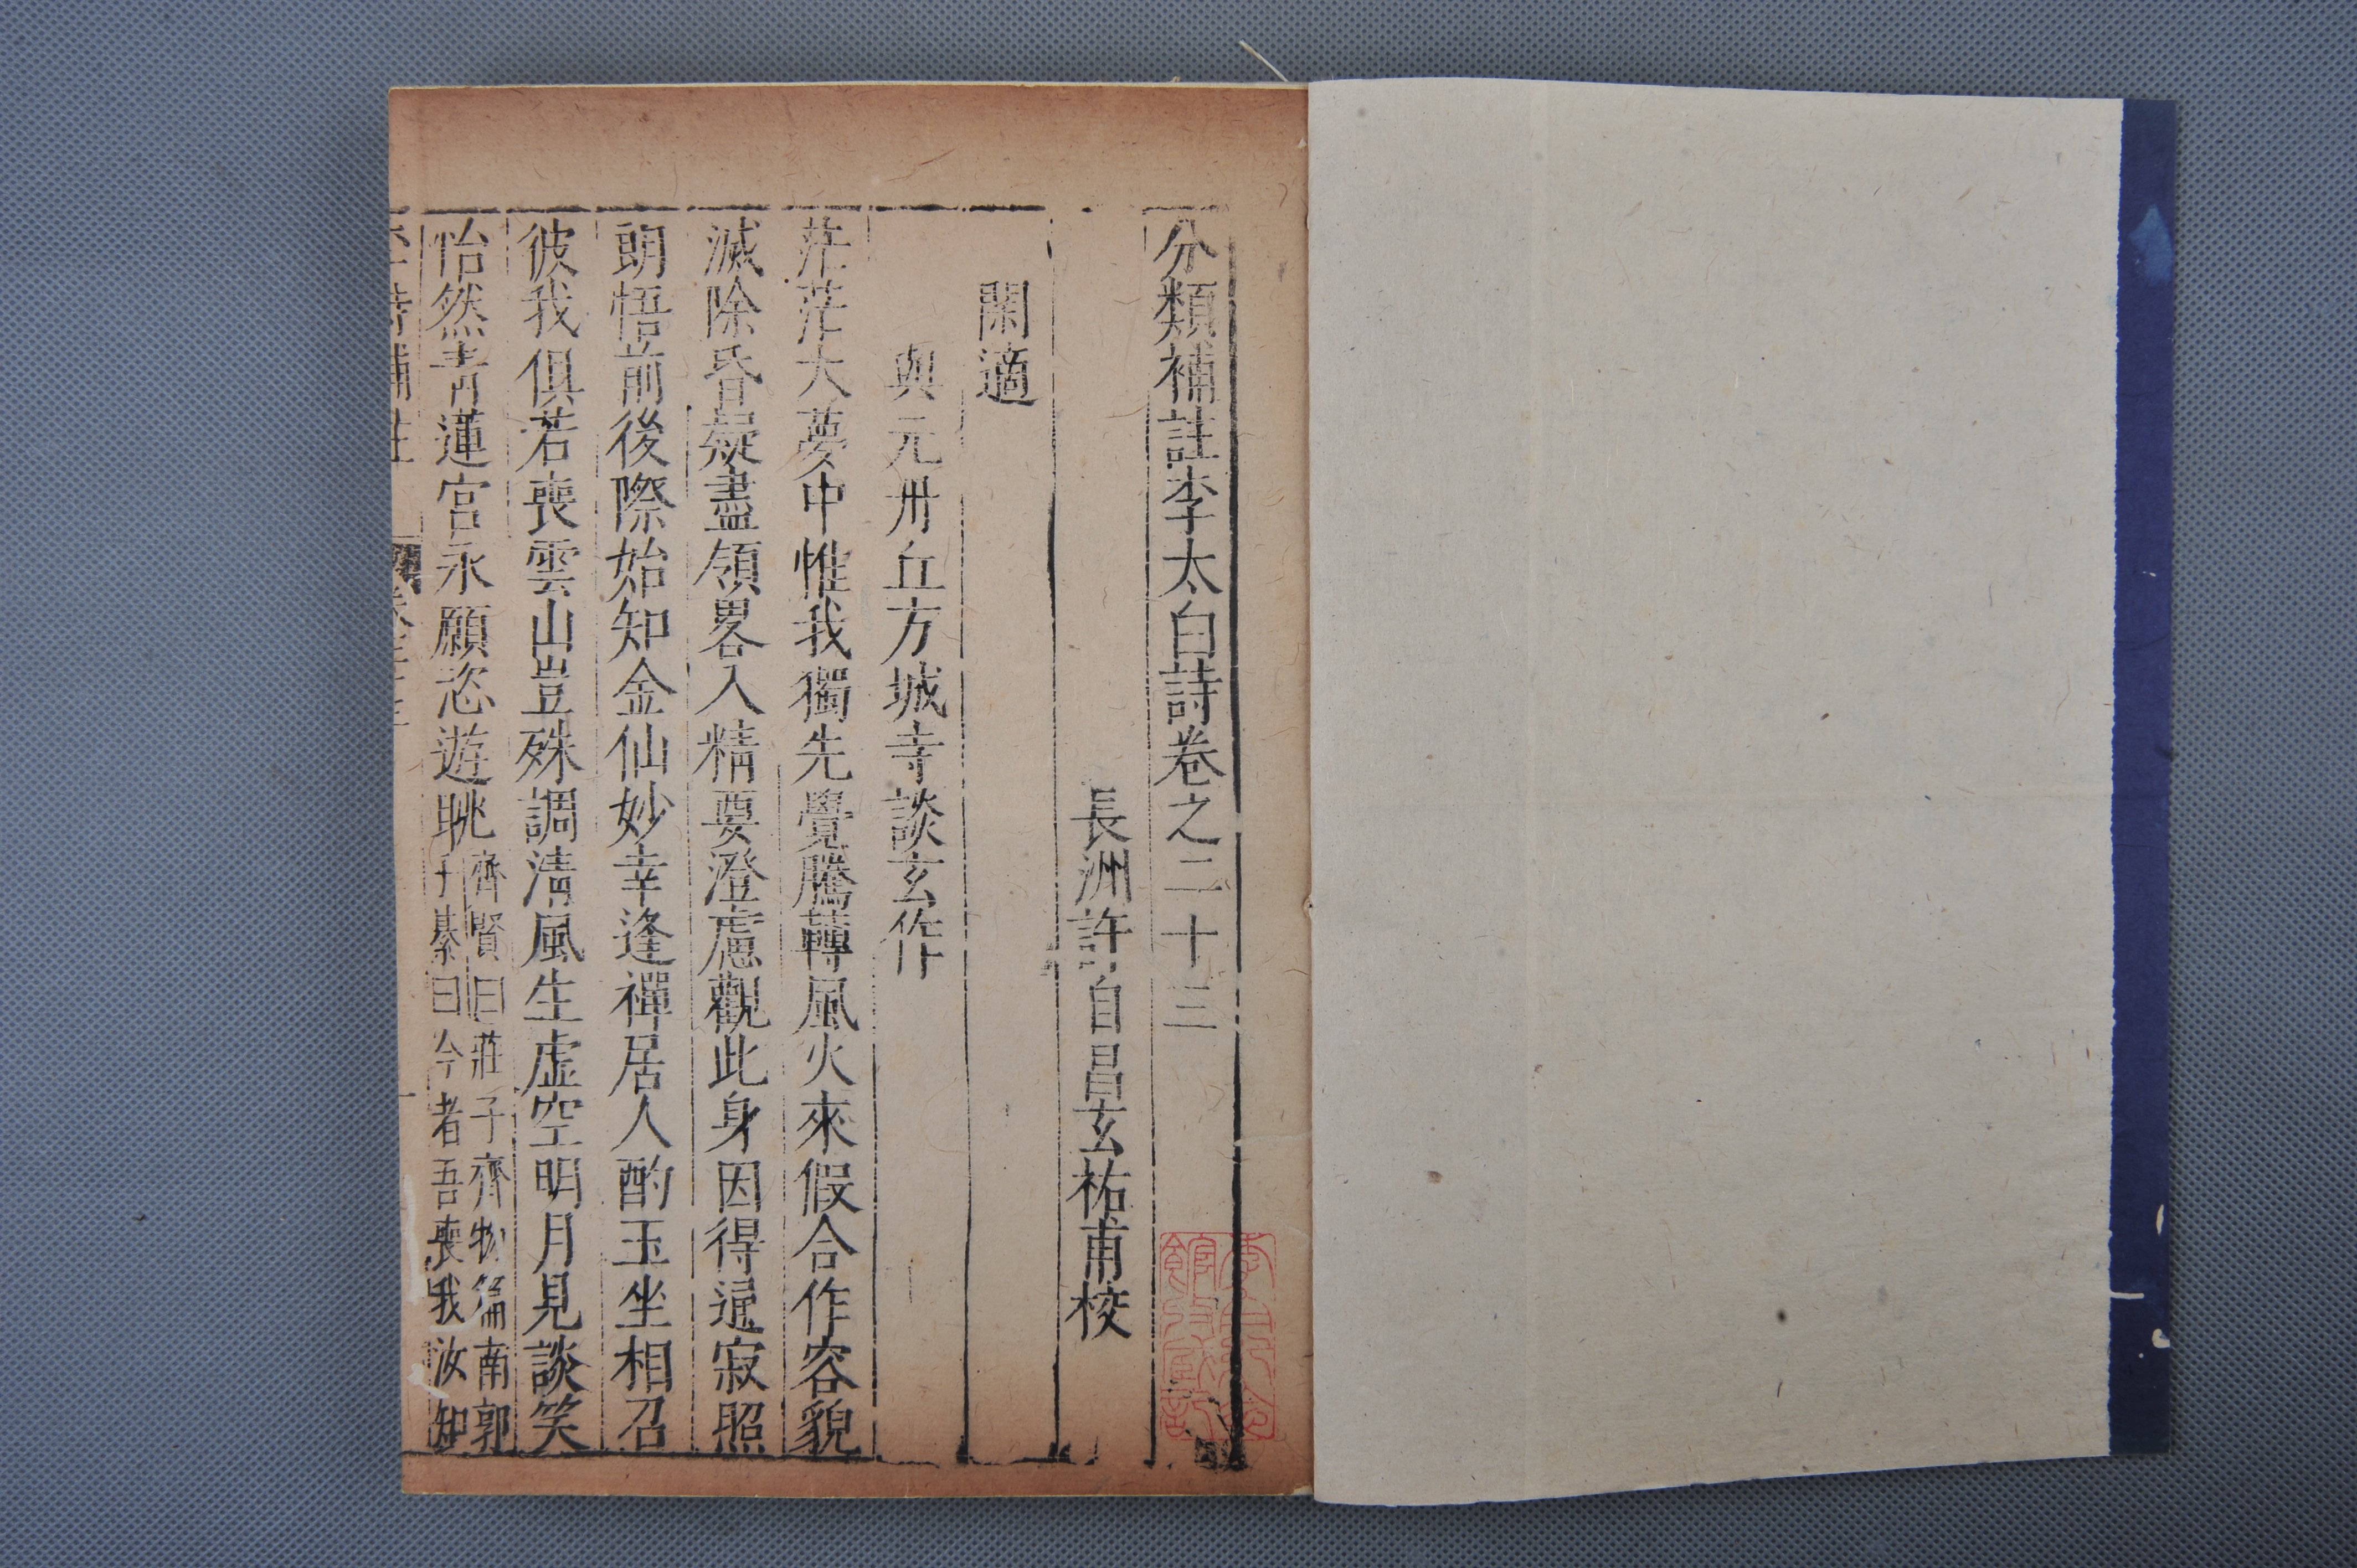 分類補註李太白詩卷之二十三
長洲許自昌玄祐甫校
閑適
與元丹丘方城寺談玄作
茫茫大夢中惟我獨先覺騰轉風火來假合作容貌
滅除昏疑盡領畧入精要澄慮觀此身因得通寂照
朗悟前後際始知金仙妙幸逢禪居人酌玉坐相召
彼我俱若喪雲山豈殊調清風生虛空明月見談笑
怡然青蓮宮永願恣遊眺
齊賢曰莊子齊物篇南郭
子綦曰今者吾喪我汝知